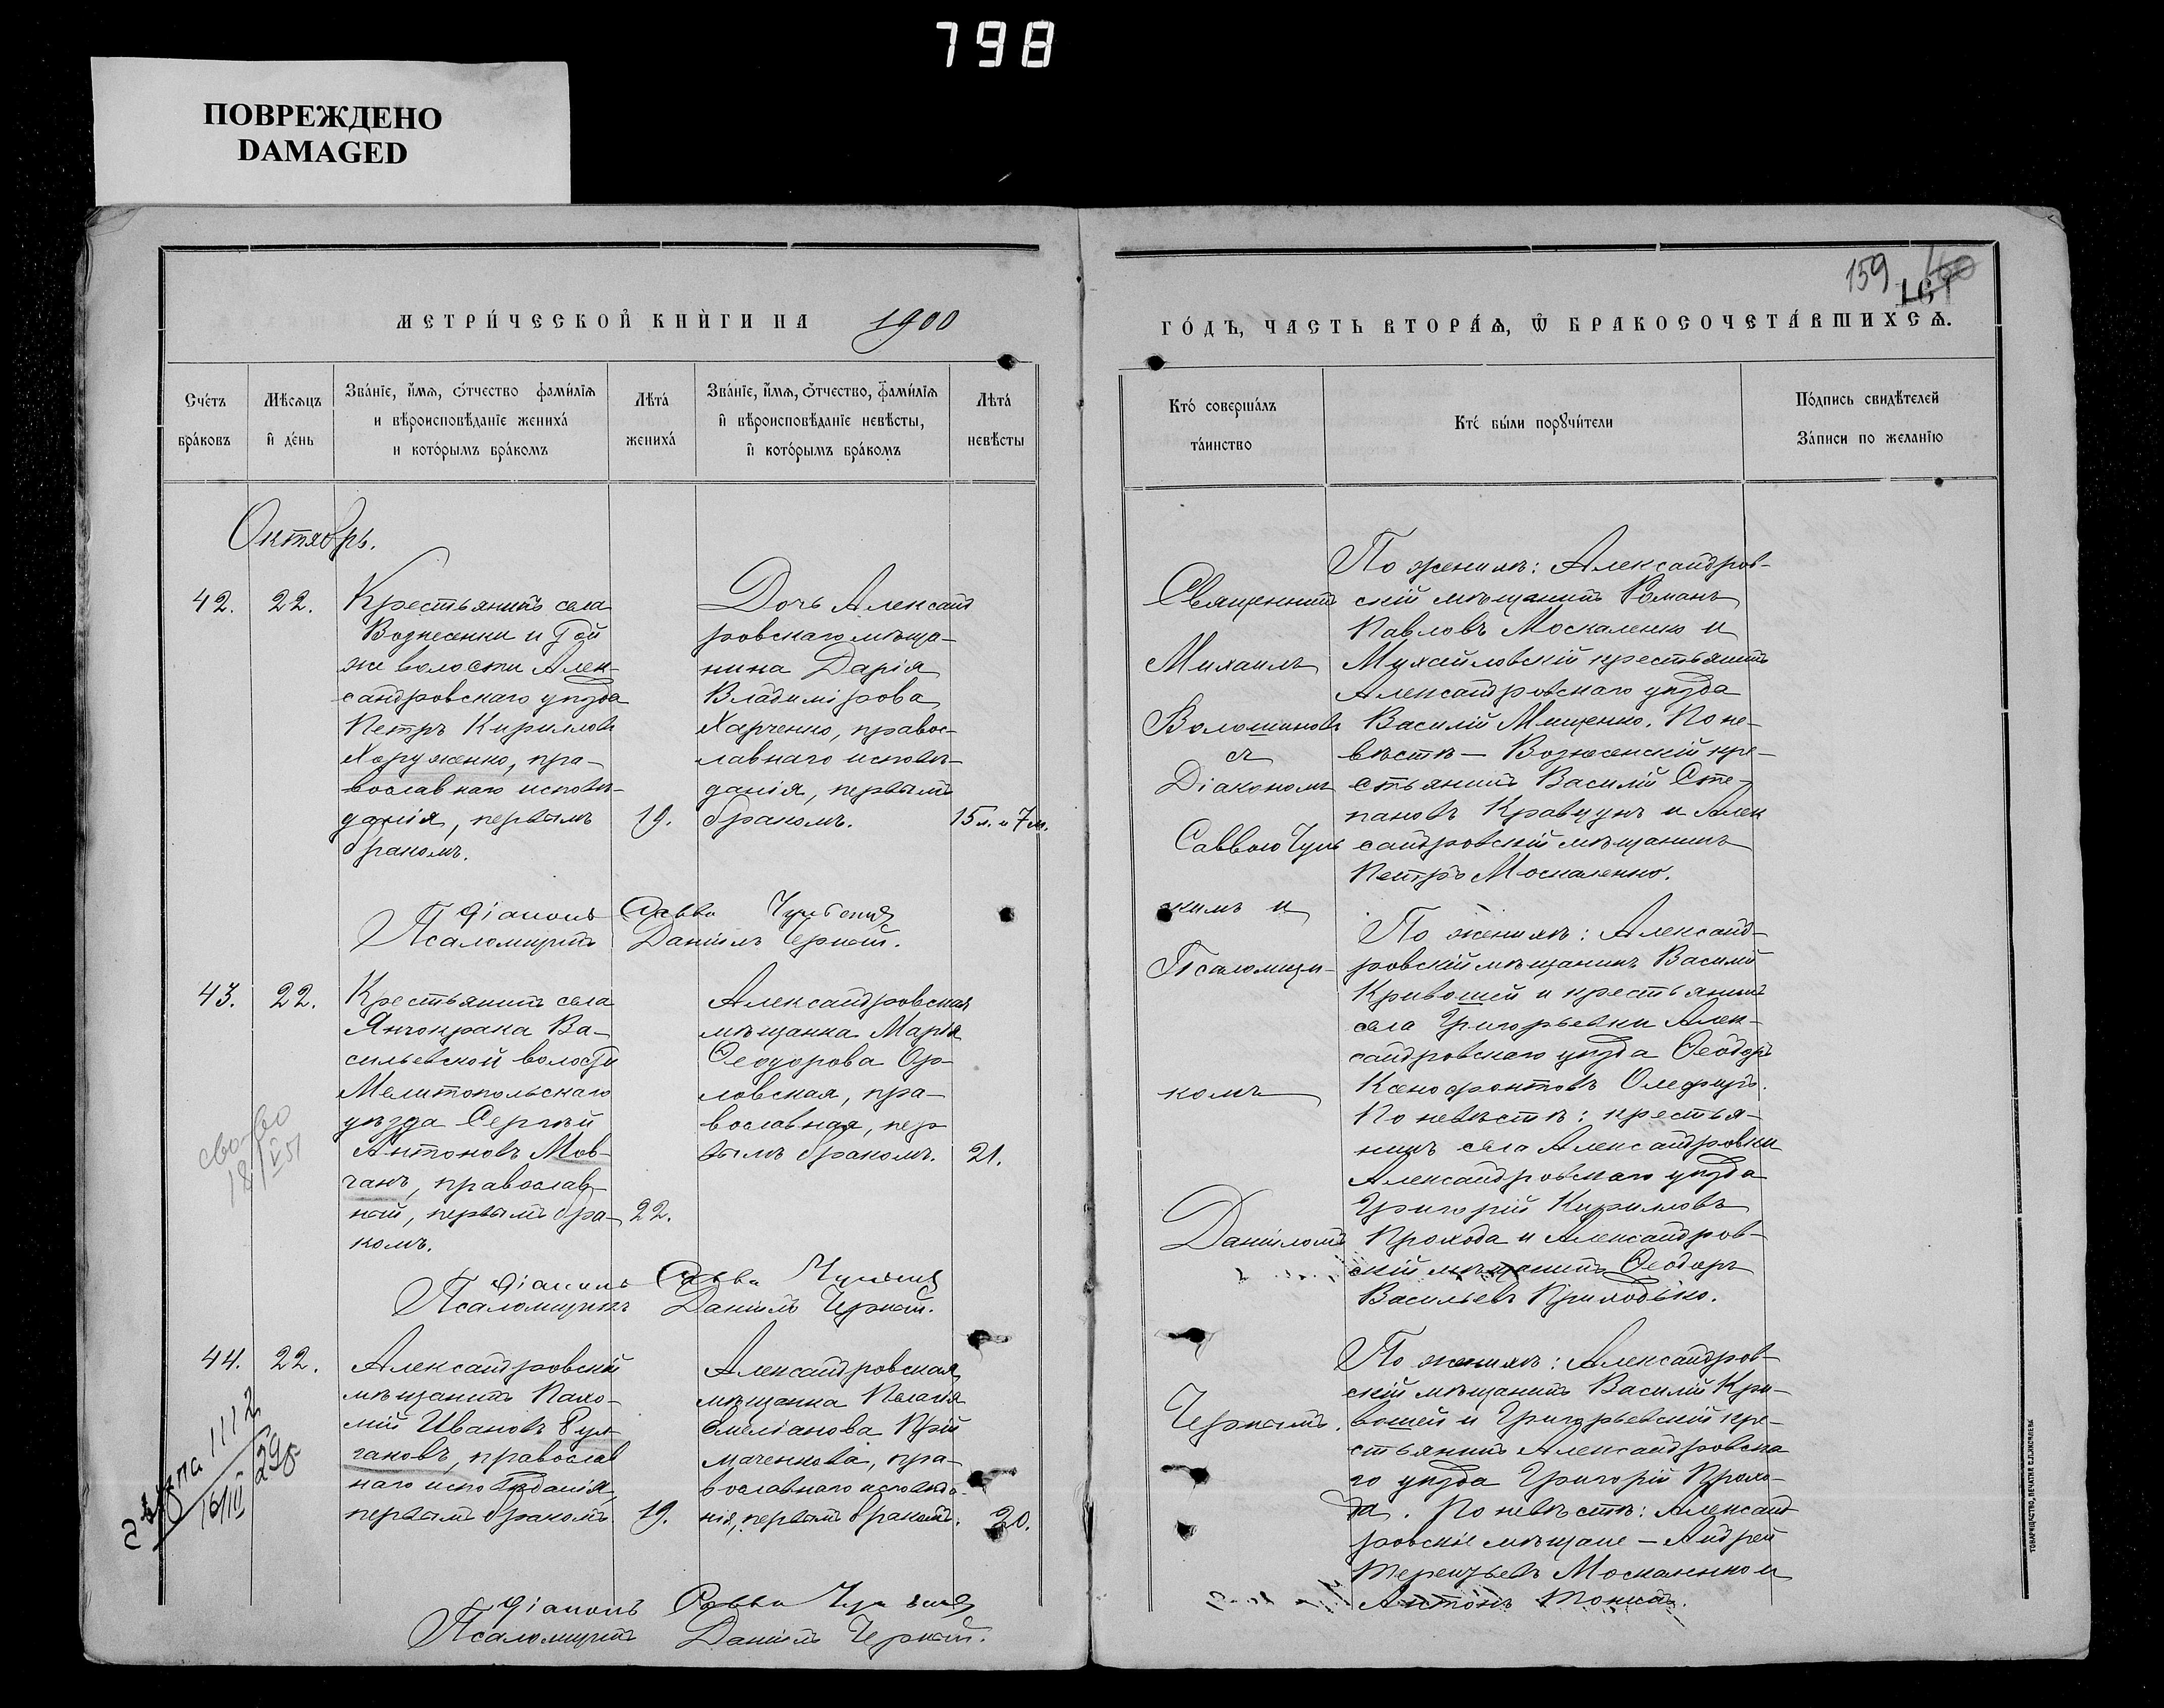 798
ПОВРЕЖДЕНО
DAMAGED
МЕТРИ́ЧЕСКОЙ КНИ́ГИ НА 1900
Сче́тъ
бра́ковъ
Мѣ́сѧцъ
и҆ де́нь
Зва́нїе, и҆́мѧ, ѻ҆́тчество фами́лїѧ
и вѣроисповѣ́данїе жениха́
и кото́рымъ бра́комъ
Лѣта́
жениха́
Зва́нїе, и҆́мѧ, ѻ҆́тчество, фами́лїѧ
и҆ вѣроисповѣ́данїе невѣ́сты,
и҆ кото́рымъ бра́комъ
Лѣта́
невѣ́сты
Октябрь.
42.
22.
Крестьянинъ села
Вознесенки и той
же волости Алек-
сандровскаго уѣзда
Петръ Кирилловъ
Хоруженко, пра-
вославнаго исповѣ-
данія, первымъ
бракомъ.
19.
Дочь Александ
ровскаго мѣща-
нина Дарія
Владимірова
Харченко, правос-
лавнаго исповѣ-
данія, первымъ
бракомъ.
15 л. и 7 м.
Діаконъ Савва
Псаломщикъ Даніилъ Черный.
43.
22.
Крестьянинъ села
Янчокрака Ва-
сильевской волости
Мелитопольскаго
уѣзда Сергѣй
Антоновъ Мов-
чанъ, православ-
ный, первымъ бра-
комъ.
22.
Александровская
мѣщанка Марія
Ѳеодорова Ор-
ловская, пра-
вославная, пер
вымъ бракомъ.
21.
18/
51
Діаконъ Савва
Псаломщикъ Даніилъ Черный.
44.
22.
Александровскій
мѣщанинъ Пахо-
мій Ивановъ
православ
наго исповѣданія,
первымъ бракомъ.
19.
Александровская
мѣщанка Пелагія
Емеліанова
пра-
вославнаго исповѣда-
нія, первымъ бракомъ.
20.
1112
16/III 29г
Діаконъ Савва
Псаломщикъ Даніилъ Черный.
159 160
161
ГО́ДЪ, ЧАСТЬ ВТОРА́Ѧ, Ѽ БРАКОСОЧЕТА́ВШИХСѦ.
Кто́ соверша́лъ
та́инство
Кто́ бы́ли порꙋчи́тели
По́дпись свидѣ́телей
За́писи по жела́нїю
Священникъ
Михаилъ
Волошиновъ
съ
Діакономъ
Саввою Чуль
скимъ и
Псаломщи-
комъ
Даніиломъ
Чернымъ.
По женихѣ: Александров-
скій мѣщанинъ Романъ
Павловъ Москаленко и
Михайловскій крестьянинъ
Александровскаго уѣзда
Василій Мищенко. По не-
вѣстѣ — Вознесенскій кре-
стьянинъ Василій Сте-
пановъ Кравцунъ и Алек
сандровскій мѣщанинъ
Петръ Москаленко.
По женихѣ: Александ-
ровскій мѣщанинъ Василій
Кривошей и крестьянинъ
села Григорьевки Алек-
сандровскаго уѣзда Ѳеодоръ
Ксенофонтовъ Олефиръ.
По невѣстѣ: крестья-
нинъ села Александровки
Александровскаго уѣзда
Григорій Кирилловъ
Прохода и Александров-
скій мѣщанинъ Ѳеодоръ
Васильевъ Приходько.
По женихѣ: Александров-
скій мѣщанинъ Василій Кри-
вошей и Григорьевскій кре-
стьянинъ Александровска
го уѣзда Григорій Прохо-
да. По невѣстѣ: Александ
ровскіе мѣщане — Андрей
Терентьевъ Москаленко и
Антонъ
ТОВАРИЩЕСТВО„ПЕЧАТНЯ С.П.ЯКОВЛЕВА